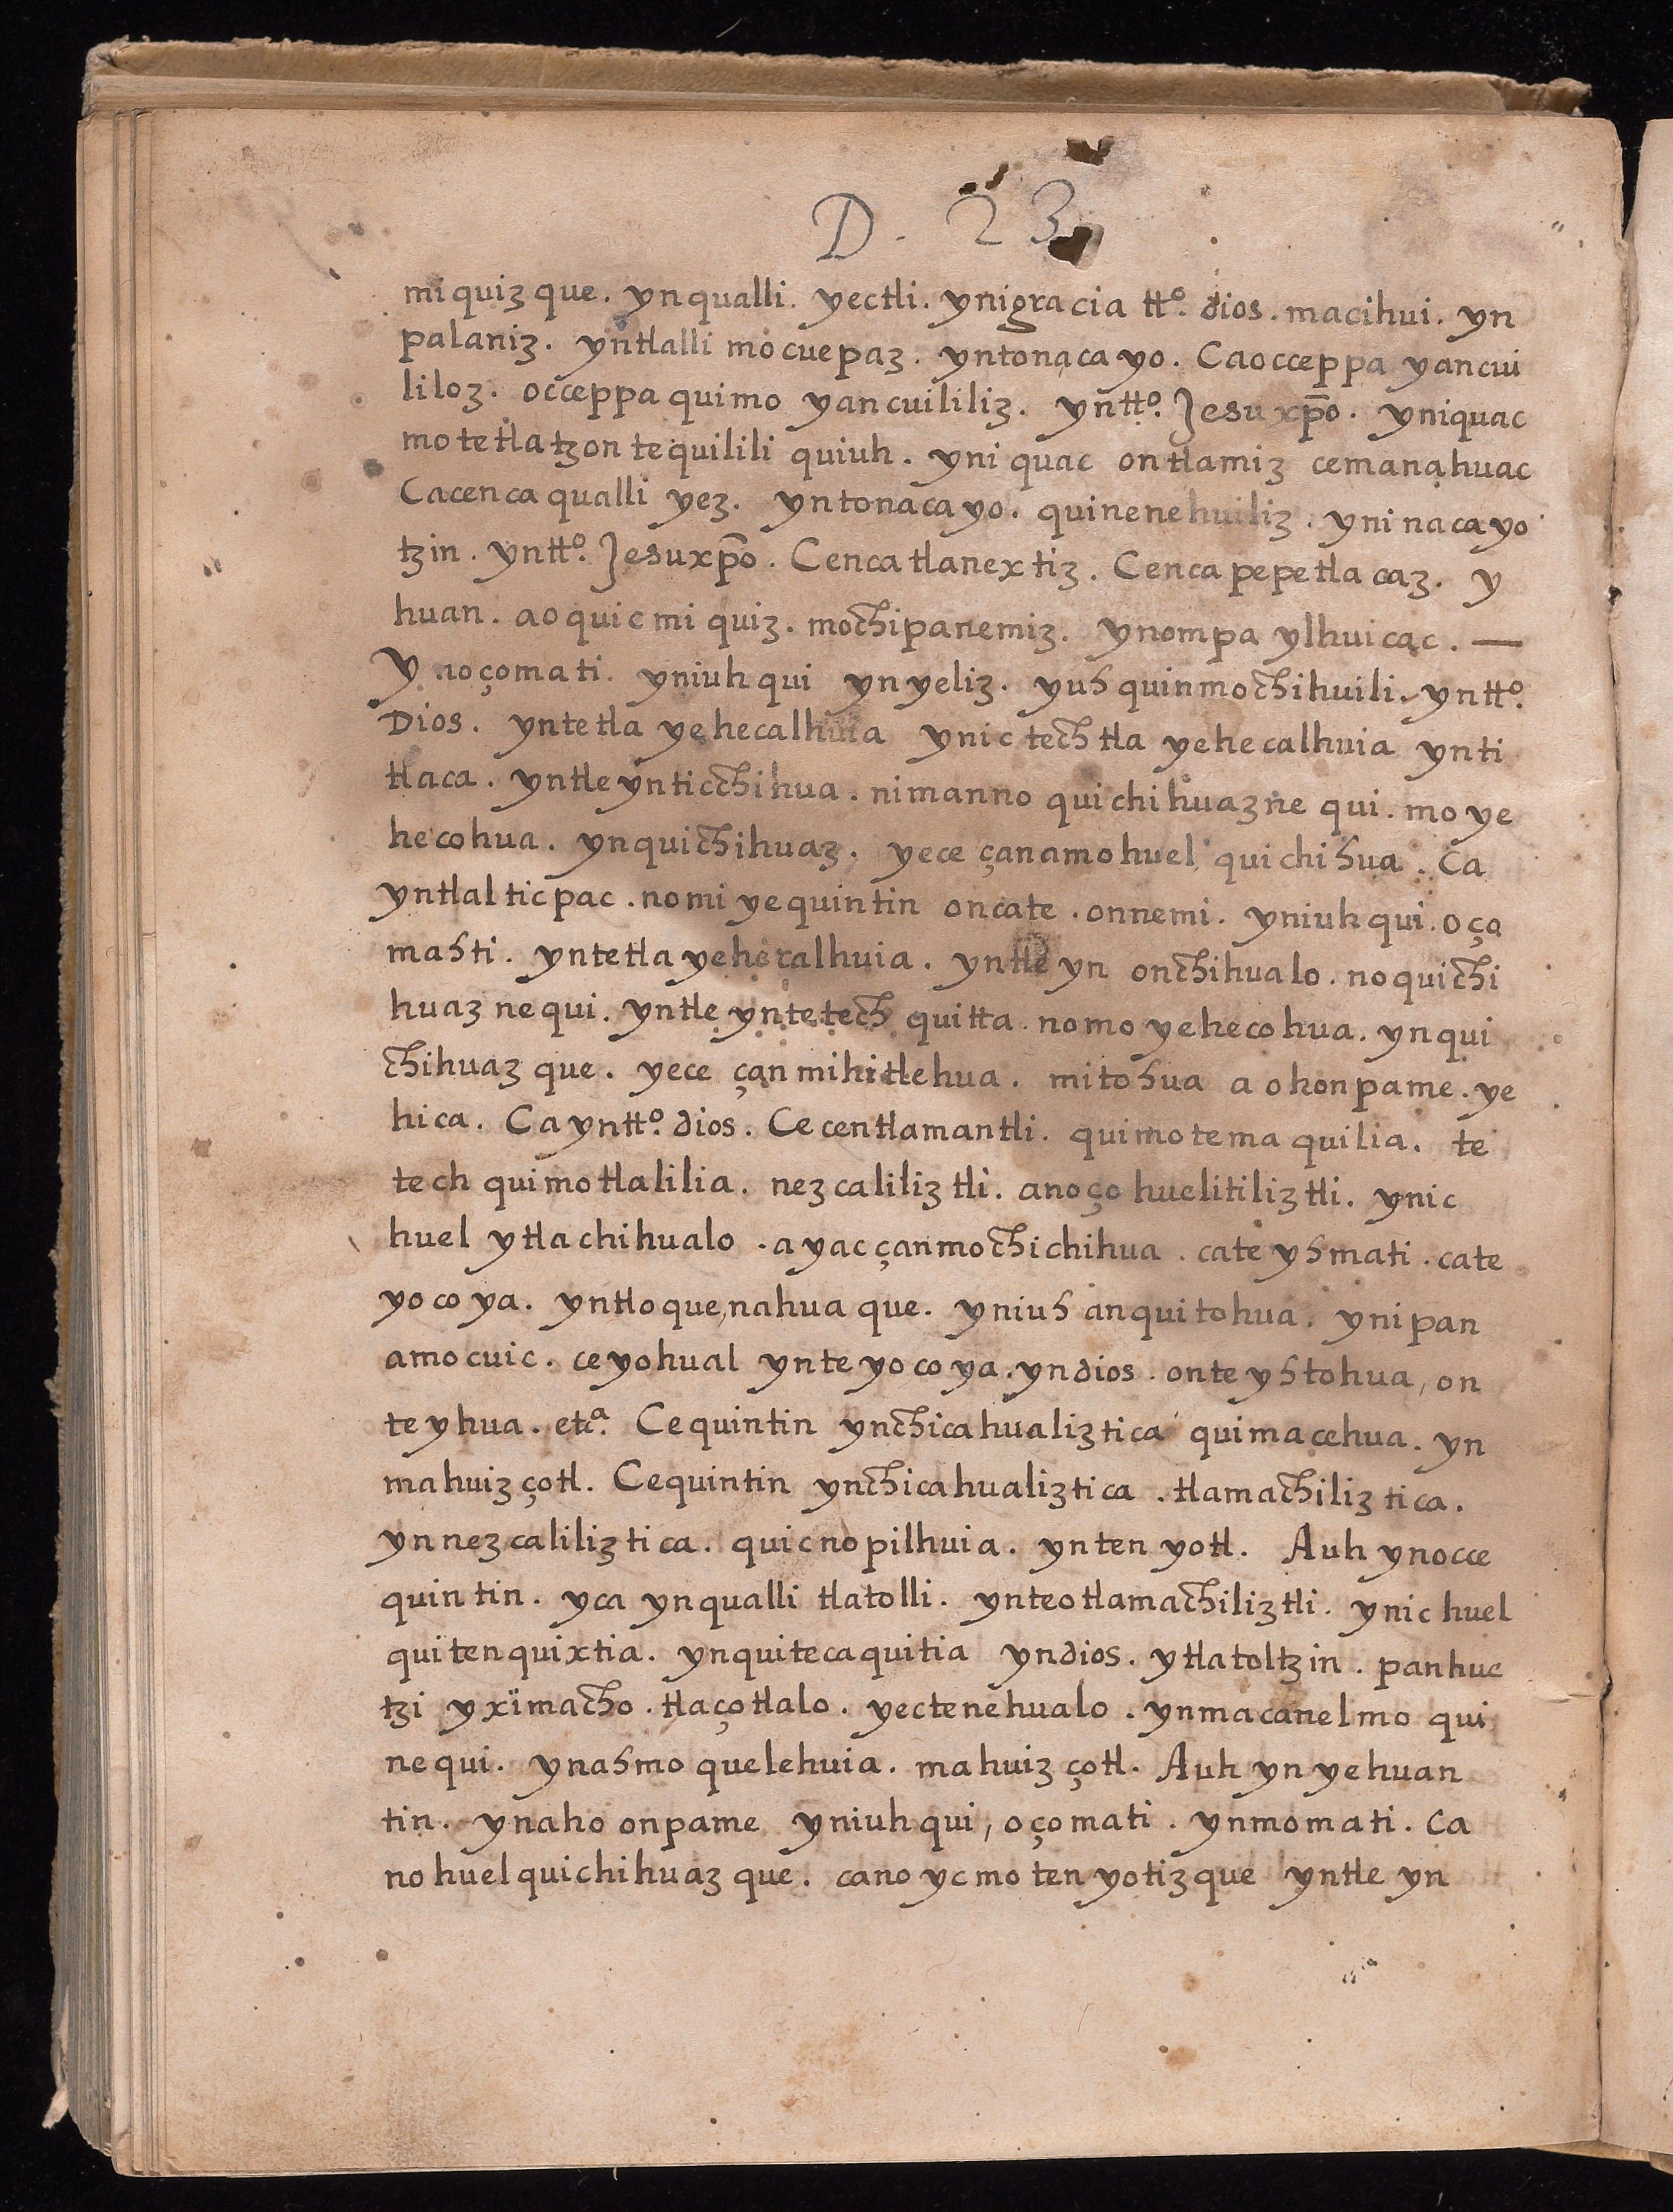 D. 23
miquiz que. yn qualli. yectli. ynigracia tto. dios. macihui. yn
palaniz. yntlalli mocuepaz. yntonacayo. Caocceppa yancui
liloz. occeppa quimo yancuililiz. yntto. Jesu xp̄o. yniquac
motetlatzontequilili quiuh. yni quac ontlamiz cemanahuac
Cacenca qualli yez. yntonacayo. quinenehuiliz. yni nacayo
tzin. yntto. Jesu xp̄o. Cenca tlanextiz. Cenca pepetlacaz. y
huan. aoquic miquiz. mochipanemiz. ynompa ylhuicac. —
Y noçomati. yniuhqui ynyeliz. yuh quinmochihuili. yntto.
Dios. yntetla yehecalhuia ynic techtla yehecalhuia ynti
tlaca. yntleynticchihua. nimanno quichihuaznequi. moye
hecohua. ynquichihuaz. yece çanamohuel quichihua. Ca
yntlalticpac. nomi yequintin oncate. onnemi. yniuhqui. oço
mahti. yntetlayehecalhuia. yntleyn onchihualo. noquichi
huaz nequi. yntle yntetech quitta. nomo yehecohua. ynqui
chihuaz que. yece çan mihitlehua. mitohua aohonpame. ye
hica. Ca yntto. dios. Cecentlamantli. quimotemaquilia. te
tech quimotlalilia. nezcaliliztli. anoço huelitiliztli. ynic
huel ytlachihualo. ayac çanmochichihua. cate yhmati. cate
yocoya. yntloque, nahuaque. yniuh anquitohua. ynipan
amocuic. ceyohual ynteyocoya. yndios. onteyhtohua, on
teyhua. etcª. Cequintin ynchicahualiztica quimacehua. yn
mahuizçotl. Cequintin ynchicahualiztica. tlamachiliztica.
ynnezcaliliztica. quicnopilhuia. yntenyotl. Auh ynocce
quintin. yca ynqualli tlatolli. ynteotlamachiliztli. ynic huel
quitenquixtia. ynquitecaquitia yndios. ytlatoltzin. panhue
tzi yxïmacho. tlaçotlalo. yectenehualo. ynmacanelmo qui
nequi. ynahmo quelehuia. mahuizçotl. Auh ynyehuan
tin. ynaho onpame yniuhqui, oçomati. ynmomati. Ca
nohuelquichihuazque. cano ycmotenyotizque yntle yn